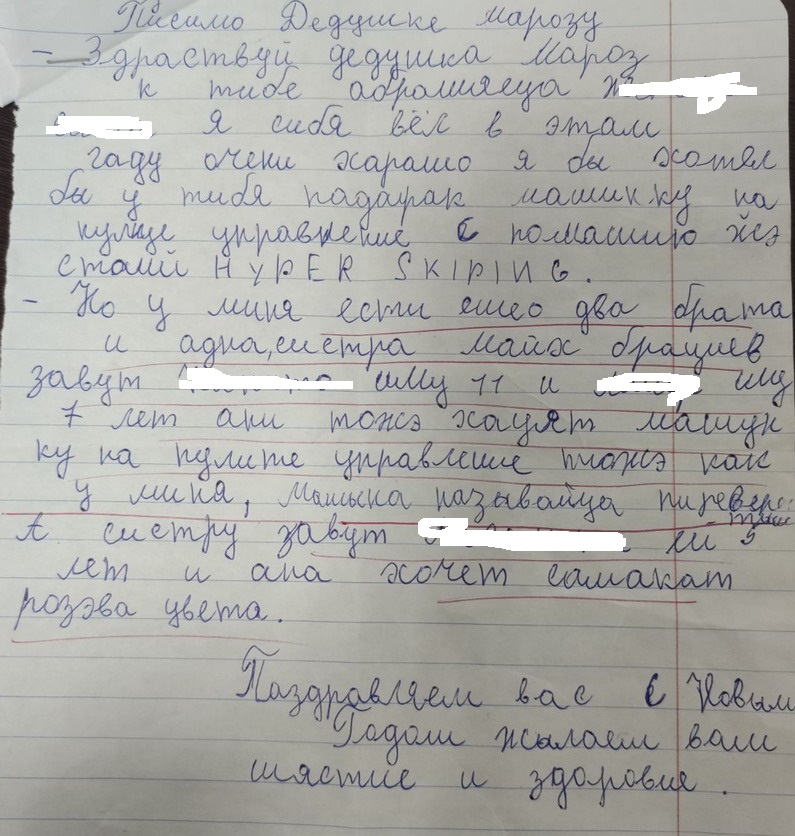 Писимо Дедушке марозу
- Здраствуй дедушка Мароз
к тибе абрашяеца
. Я сибя вёл в этам
гаду очени харашо я бы хотял
бы у тибя падарак машинку на
управление с помащию
HYPER SKIPING.
- Но у миня ести ешео два брата
и адна, систра майх брациев
завут иму 11 и иму
7 лет ани тожэ хацят машун
ку на пулите управление тожэ как
у миня, Машына называйца пиревёр
тыш
А систру завут ей 5
лет и ана хочет самакат
розэва цвета.
Паздравляем вас с Новым
Гадом жылаем вам
шястие и здоровие.